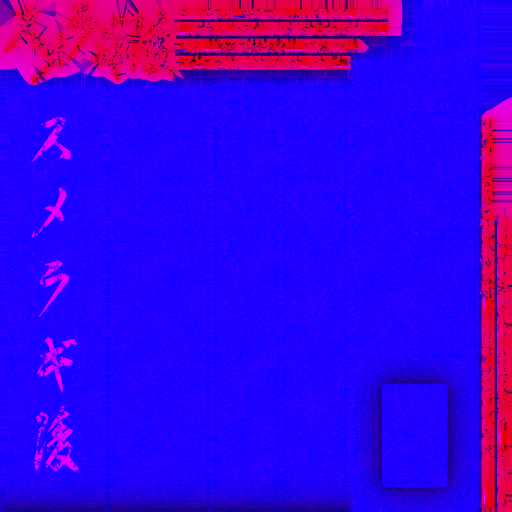 スメラギ陵